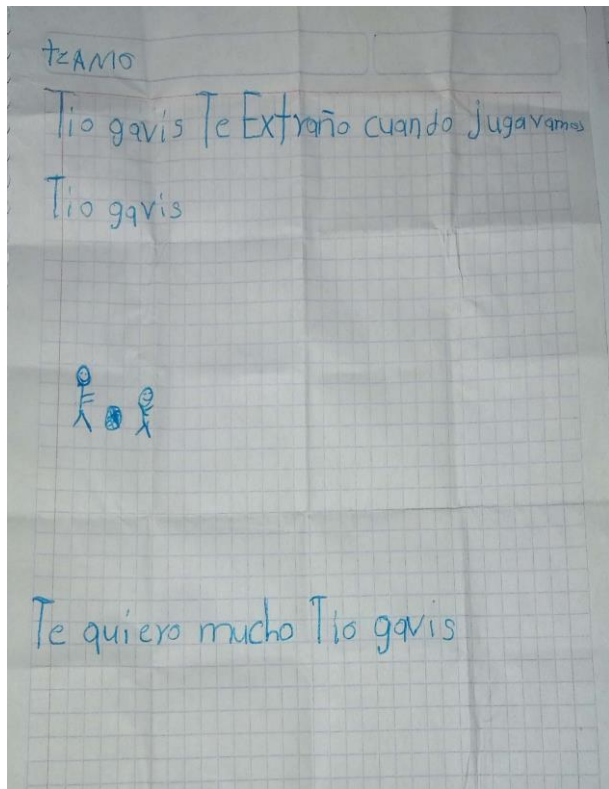 tEAMO
Tio gavis Te Extraño cuando jugavamos
Tio gavis
Te quiero mucho Tio gavis